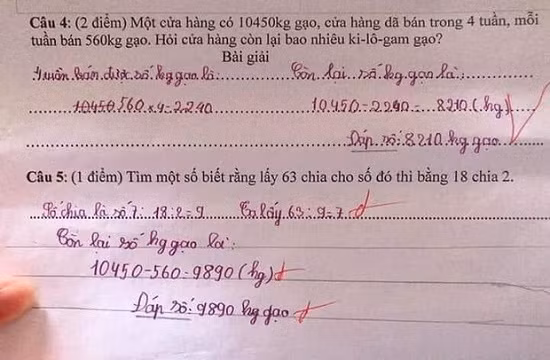 Câu 4: (2 điểm) Một cửa hàng có 10450kg gạo, cửa hàng dã bán trong 4 tuần, mỗi
tuần bán 560kg gạo. Hỏi cửa hàng còn lại bao nhiêu ki-lô-gam gạo?
Bài giải
4 tuần bán được số kg gạo là: Còn lại số kg gạo là:
560 x 4 = 2240 10450 - 2240 = 8210 (kg)
Đáp số: 8210 kg gạo
Câu 5: (1 điểm) Tìm một số biết rằng lấy 63 chia cho số đó thì bằng 18 chia 2.
Số chia là số 7: 18 : 2 = 9 Ta lấy 63 : 9 = 7
Còn lại số kg gạo là:
10450 - 560 = 9890 (kg)
Đáp số: 9890 kg gạo